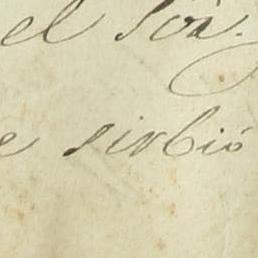 el Sôr.
e sirbió